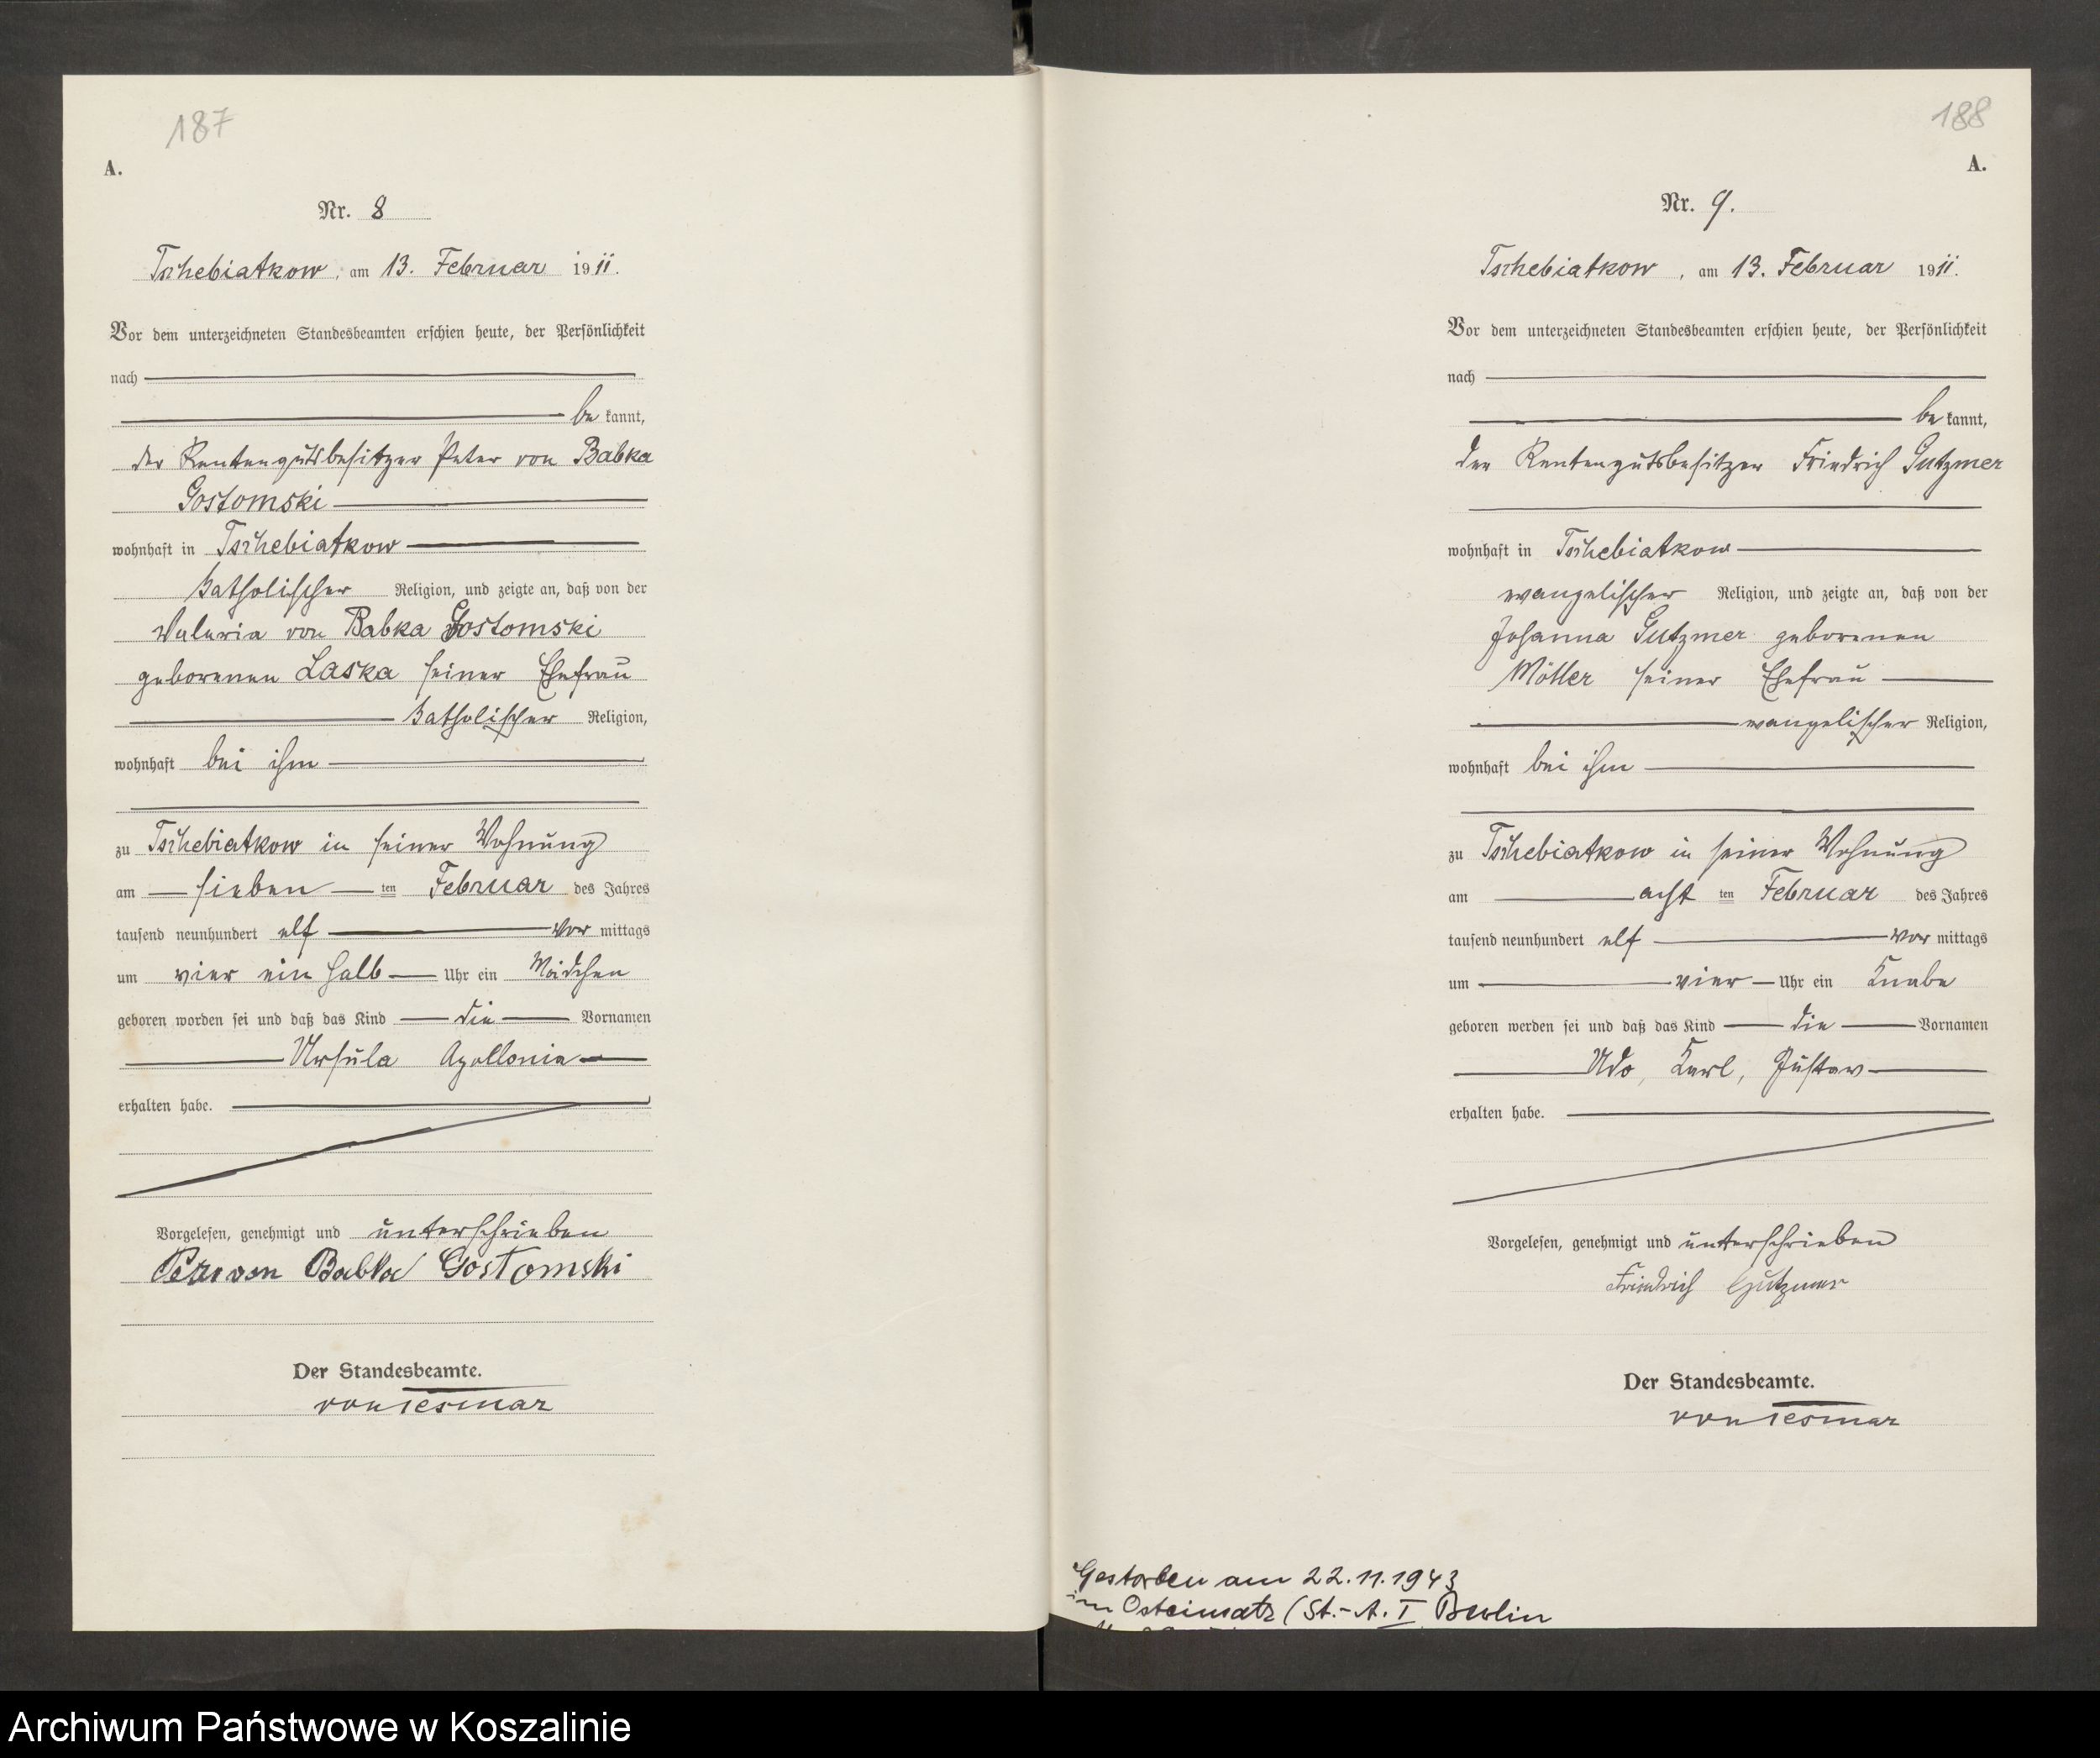 187
A.
Nr. 8
Tschebiatkow, am 13. Februar 1911.
Vor dem unterzeichneten Standesbeamten erschien heute, der Persönlichkeit
nach
be kannt,
der Rentengutsbesitzer Peter von Babka
Gostomski
wohnhaft in Tschebiatkow
katholischer Religion, und zeigte an, daß von der
Valeria von Babka Gostomski
geborenen Laska seiner Ehefrau
katholischer Religion,
wohnhaft bei ihm
zu Tschebiatkow in seiner Wohnung
am sieben ten Februar des Jahres
tausend neunhundert elf vor mittags
um vier ein halb Uhr ein Mädchen
geboren worden sei und daß das Kind die Vornamen
Ursula Apollonia
erhalten habe.
Vorgelesen, genehmigt und unterschrieben
von Babka Gostomski
Der Standesbeamte.
von Tesmar
188
A.
Nr. 9.
Tschebiatkow, am 13. Februar 1911.
Vor dem unterzeichneten Standesbeamten erschien heute, der Persönlichkeit
nach
be kannt,
der Rentengutsbesitzer Friedrich Gutzmer
wohnhaft in Tschebiatkow
evangelischer Religion, und zeigte an, daß von der
Johanna Gutzmer geborenen
Möller seiner Ehefrau
evangelischer Religion,
wohnhaft bei ihm
zu Tschebiatkow in seiner Wohnung
am acht ten Februar des Jahres
tausend neunhundert elf vor mittags
um vier Uhr ein Knabe
geboren worden sei und daß das Kind die Vornamen
Udo, Karl, Gustav
erhalten habe.
Vorgelesen, genehmigt und unterschrieben
Friedrich Gutzmer
Der Standesbeamte.
von Tesmar
Gestorben am 22.11.1943
im Osteinsatz (St.-A. I Berlin
Archiwum Państwowe w Koszalinie